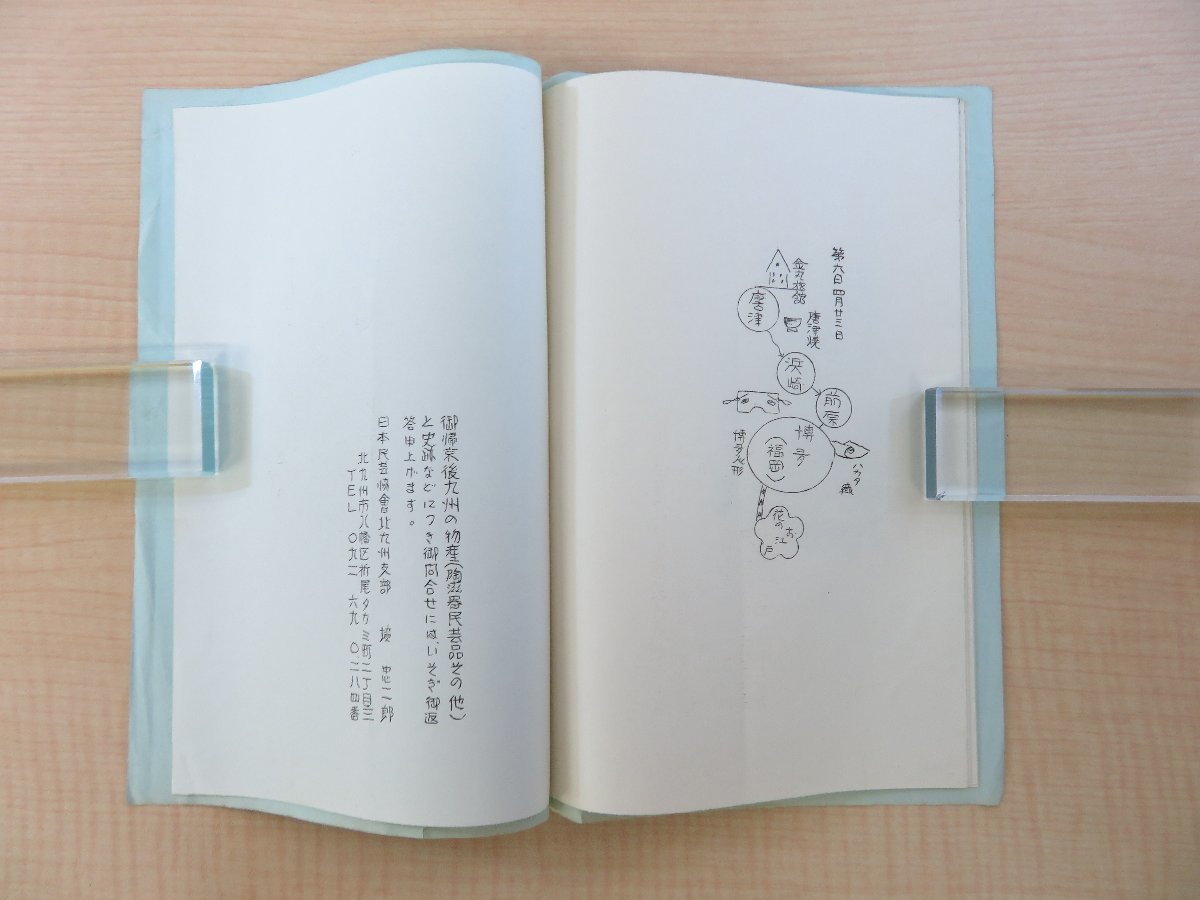 第六日 四月廿三日
旅館
唐津
唐津焼
浜崎
前原
博多
(福岡)
博多人形
ハカタ織
花のお江戸
御帰京後九州の物産(陶滋器民芸品その他)
と史跡などにつき御向合せには、いそぎ御返
答申上がます。
日本民芸協會北九州支部 忠二郎
北九州市八幡区折尾タカミ町二丁目三
TEL 〇九三 六九 〇二八四番